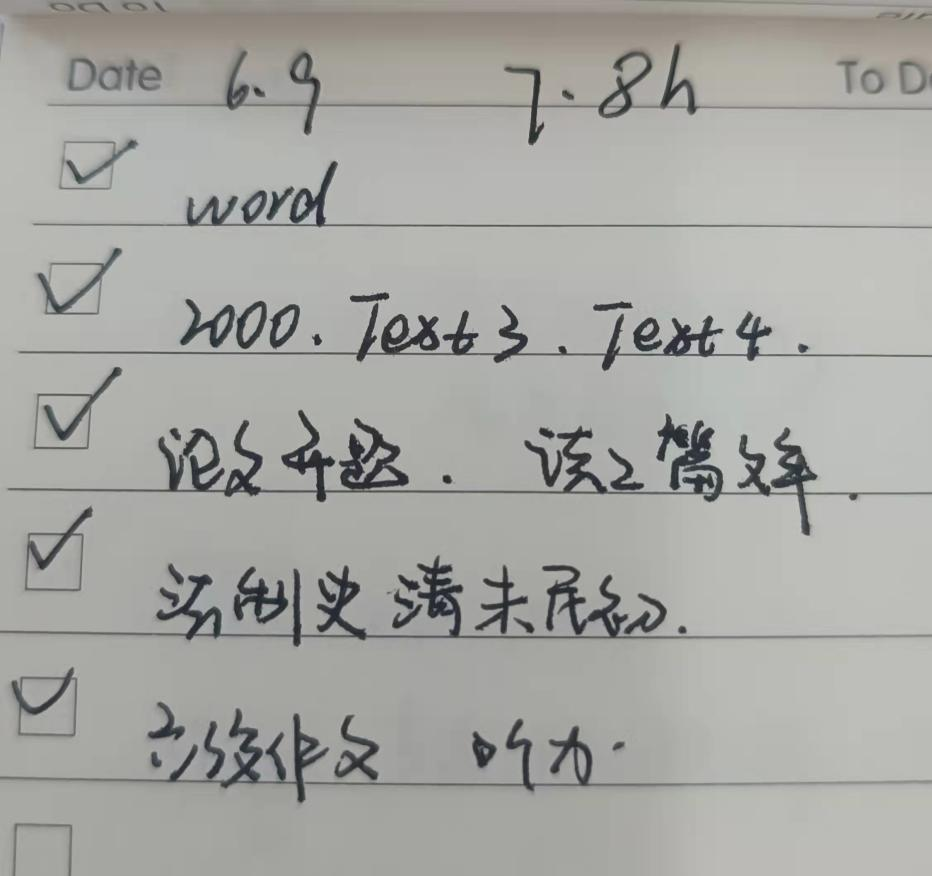 Date 6.9 7.8h To D
word
2000. Text 3. Text 4.
论文开题. 读2篇文年.
法制史 清末民初.
六级作文 听力.